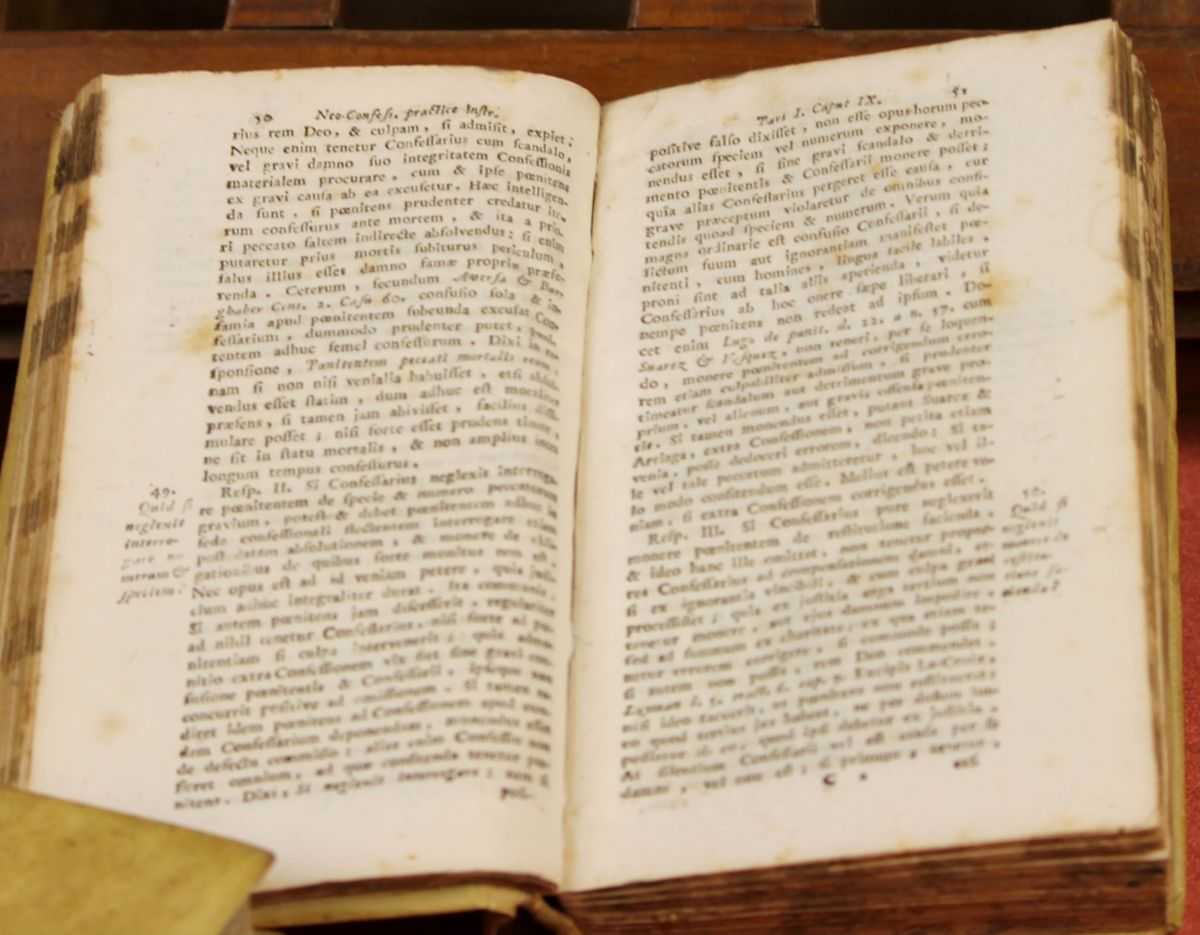 50 Neo-Confess. practice Instr.
rius rem Deo, & culpam, si admisit, expiet;
Neque enim tenetur Confessarius cum scandalo,
vel gravi damno suo integritatem Confessionis
materialem procurare, cum & ipse pœnitens
ex gravi causa ab ea excusetur. Hæc intelligen-
da sunt, si pœnitens prudenter credatur ite-
rum confessurus ante mortem, & ita a prio-
ri peccato saltem indirecte absolvendus: si enim
putaretur prius mortis subiturus periculum,
salus illius esset damno famæ propriæ præfe-
renda. Ceterum, secundum Aversa & Bur-
ghaber Cent. 2. Casu 60. confusio sola & in-
famia apud pœnitentem subeunda excusat Con-
fessarium, dummodo prudenter putet, pœni-
tentem adhuc semel confessurum. Dixi in re-
sponsione, Pœnitentem peccati mortalis reum,
nam si non nisi venialia habuisset, etsi absol-
vendus esset statim, dum adhuc est moraliter
præsens, si tamen jam abivisset, facilius dissi-
mulare posset; nisi forte esset prudens timor,
ne sit in statu mortalis, & non amplius intra
longum tempus confessurus.
49.
Quid si
neglexit
interro-
gare nu-
merum &
speciem?
Resp. II. Si Confessarius neglexit interroga-
re pœnitentem de specie & numero peccatorum
gravium, potest & debet pœnitentem adhuc in
sede confessionali flectentem interrogare etiam
post datam absolutionem, & monere de obli-
gationibus de quibus forte monitus non est.
Nec opus est ad id veniam petere, quia judi-
cium adhuc integraliter durat. Ita communis.
Si autem pœnitens jam discesserit, regulariter
ad nihil tenetur Confessarius, nisi forte ad pœ-
nitentiam si culpa intervenerit; quia admo-
nitio extra Confessionem vix fiet sine gravi con-
fusione pœnitentis & Confessarii, ipseque non
concurrit positive ad omissionem. Si tamen re-
diret idem pœnitens ad Confessionem apud eun-
dem Confessarium deponendam, monendus esset
de defectu commisso; alias enim Confessio non
fieret omnium, ad quæ confitenda tenetur pœ-
nitens. Dixi, Si neglexit interrogare; nam si
posi-
Pars I. Caput IX. 51
positive falso dixisset, non esse opus horum pec-
catorum speciem vel numerum exponere, mo-
nendus esset, si sine gravi scandalo & detri-
mento pœnitentis & Confessarii monere posset;
quia alias Confessarius pergeret esse causa, cur
grave præceptum violaretur de omnibus confi-
tendis quoad speciem & numerum. Verum quia
magna ordinarie est confusio Confessarii, si de-
fectum suum aut ignorantiam manifestet pœ-
nitenti, cum homines, lingua facile labiles,
proni sint ad talia aliis aperienda, videtur
Confessarius ab hoc onere sæpe liberari, si
nempe pœnitens non redeat ad ipsum. Do-
cet enim Lugo de pœnit. d. 22. a n. 57. cum
Suarez & Vasquez, non teneri, per se loquen-
do, monere pœnitentem ad corrigendum erro-
rem etiam culpabiliter admissum, si prudenter
timeatur scandalum aut detrimentum grave pro-
prium, vel alienum, aut gravis offensio pœniten-
tis. Si tamen monendus esset, putant Suarez &
Arriaga, extra Confessionem, non petita etiam
venia, posse dedoceri errorem, dicendo: Si ta-
le vel tale peccatum admitteretur, hoc vel il-
lo modo confitendum esse. Melius est petere ve-
niam, si extra Confessionem corrigendus esset.
50.
Quid si
neglexit
monere de
restitu-
tione fa-
cienda?
Resp. III. Si Confessarius pure neglexerit
monere pœnitentem de restitutione facienda,
& ideo hanc ille omittat, non tenetur proprie
res Confessarius ad compensationem damni, et-
si ex ignorantia vincibili, & cum culpa gravi
processisset; quia ex justitia erga tertium non
tenetur monere, aut ejus damnum impedire,
sed ad summum ex charitate, ex qua etiam te-
netur errorem corrigere, si commode possit;
si autem non possit, rem Deo commendet.
Layman l. 5. tract. 6. cap. 9. Excipit La-Croix,
nisi ideo tacuerit, ut pœnitens non restitueret;
At silentium Confessarii vel est causa per se
damni, vel non est; si primum, tenetur,
C 2 etsi